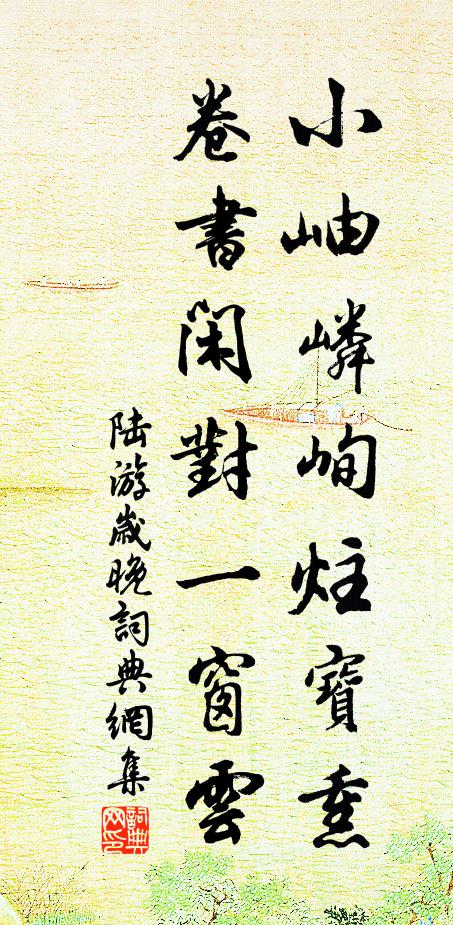 小岫嶙峋炷寶熏
卷書閑對一窗雲
陸游歲晚詞典網集
詞典網印